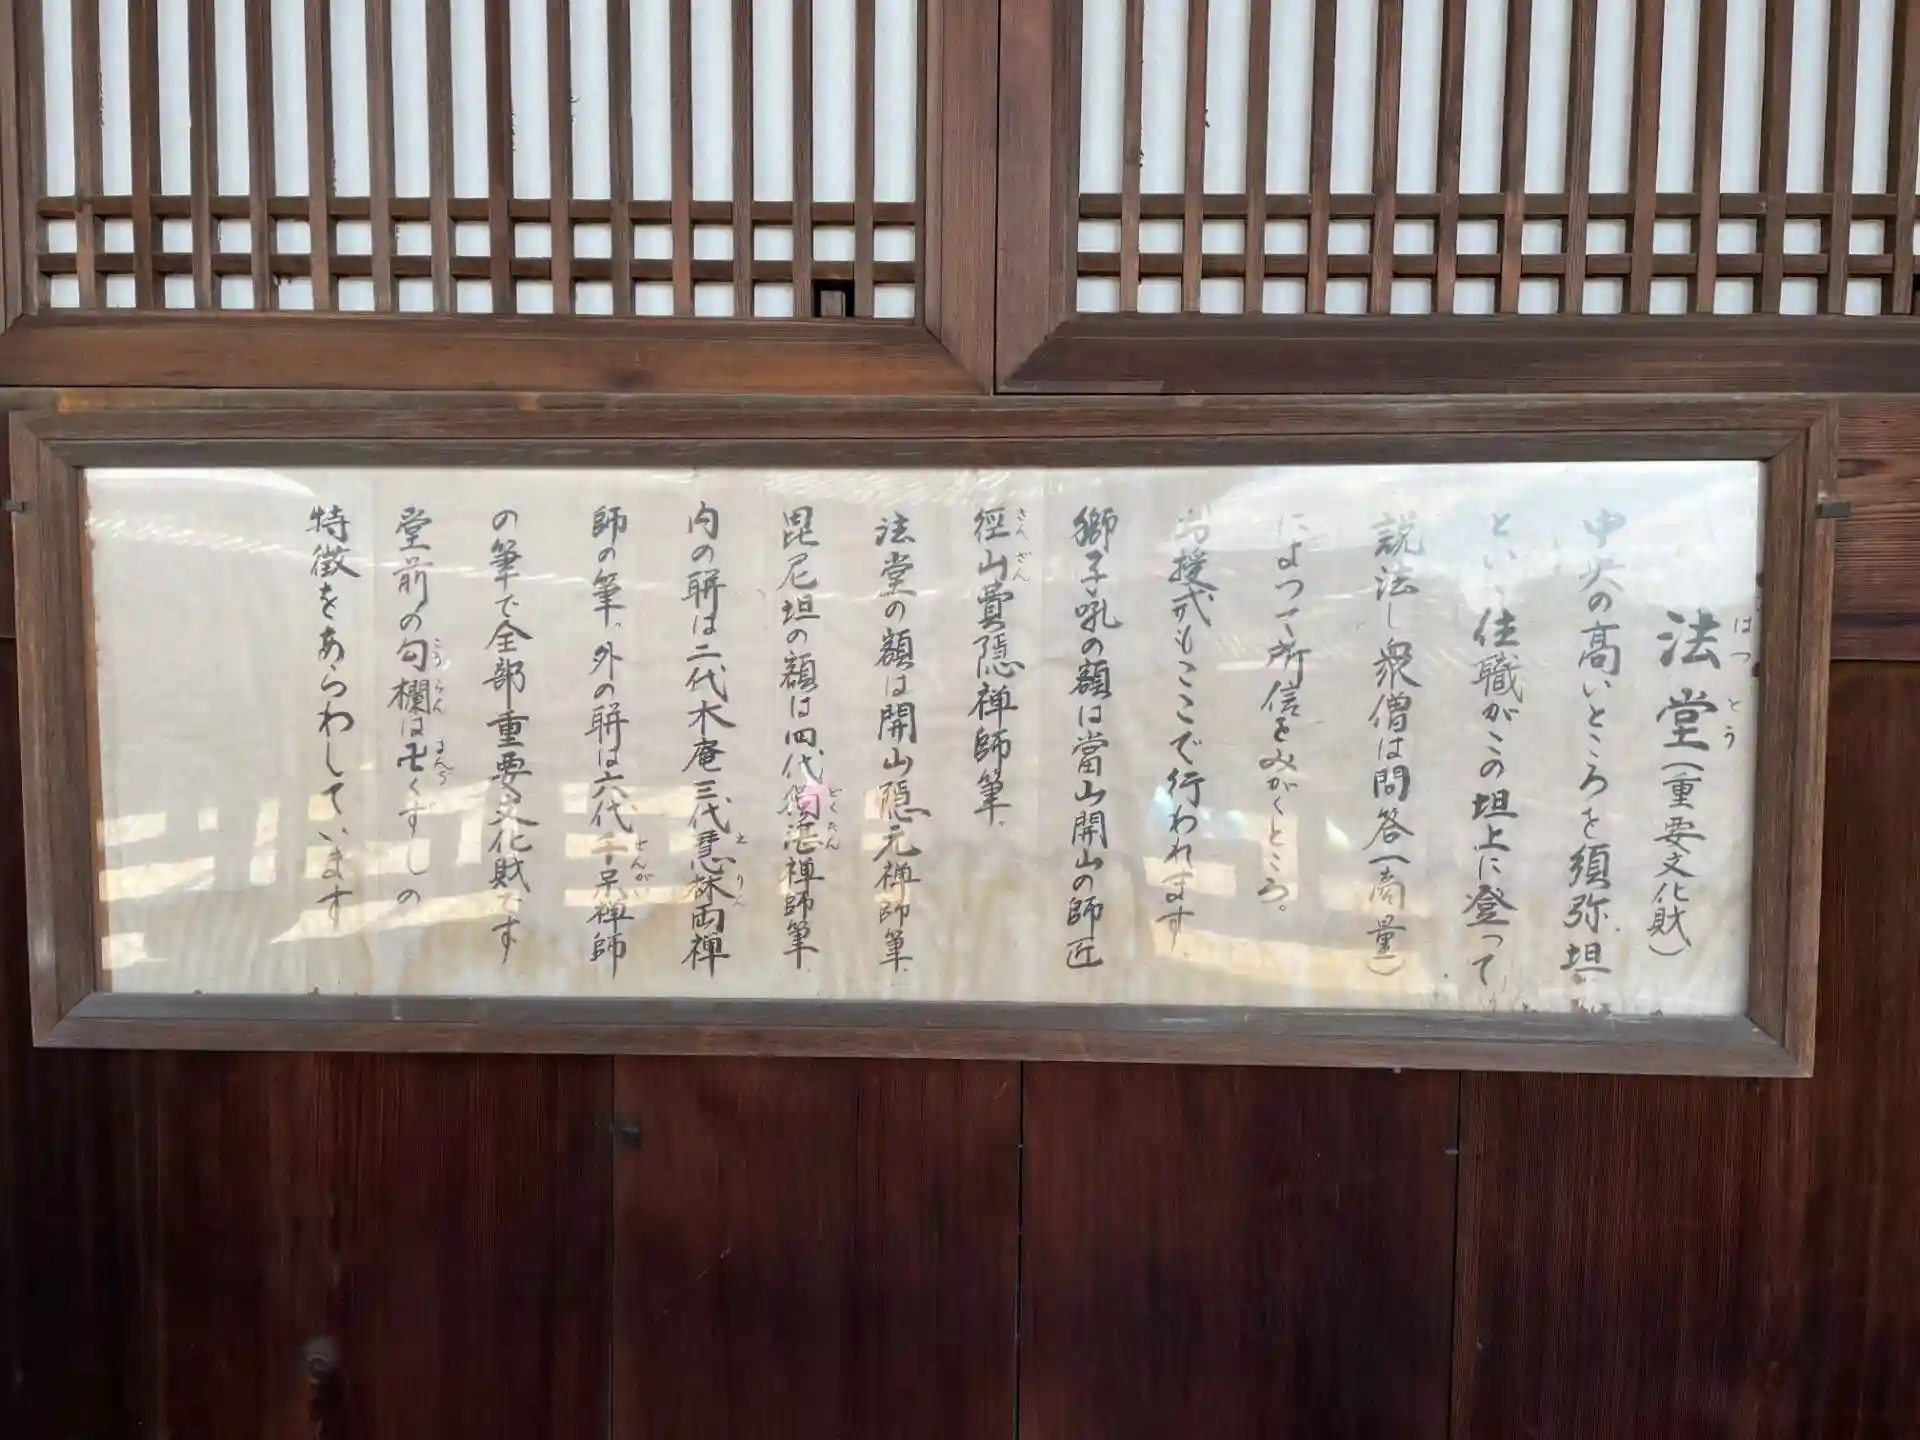 法堂(重要文化財)
はつとう
中央の高いところを須弥坦
といい住職がこの坦上に登って
説法し衆僧は問答(商量)
によつて所信をみがくところ。
お授戒もここで行われます。
獅子吼の額は當山開山の師匠
徑山費隠禅師筆。
きんざん
法堂の額は開山隠元禅師筆.
毘尼坦の額は四代独湛禅師筆.
どくたん
内の聯は二代木庵三代慧林両禅
えりん
師の筆。外の聯は六代千呆禅師
せんがい
の筆で全部重要文化財です
堂前の勾欄は卍くずしの
こうらん まんじ
特徴をあらわしています